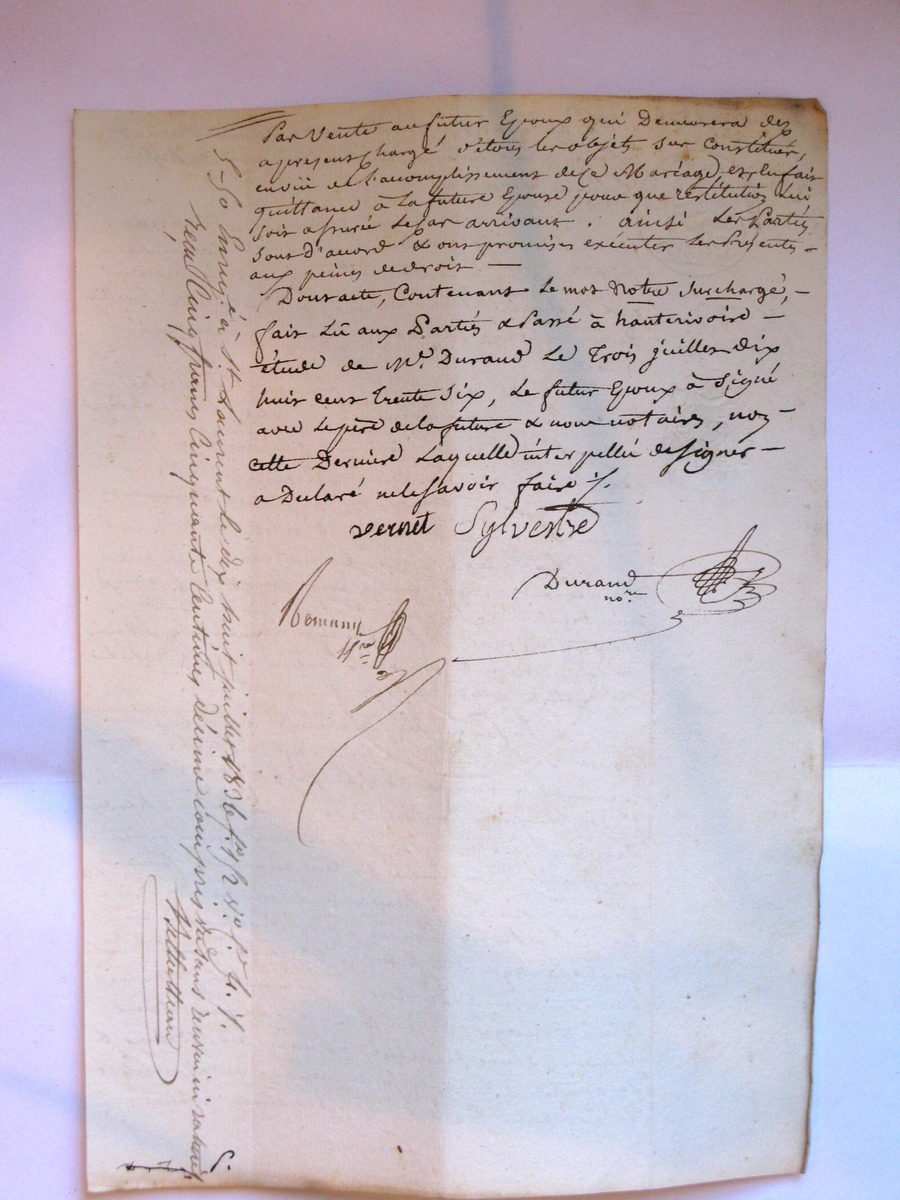 Par Vente au futur Epoux qui Demeurera des
apresent Chargé d'etous les objets sur Constitués,
envuë de l'acomplissement de Ce Mariage, et en fait
quittance à La future Epouse, pour que restitution Lui
soit assurée Le Cas arrivant. ainsi Les Parties
sont d'acord & ont promises exécuter les Présentes
aux peines de droit —
Dont acte, Contenant Le mot Notre Surchargé, —
fait Lû aux Parties & Passé à hauterivoire —
étude de Me. Durand Le Trois juillet dix
huit cent Trente Six, Le futur Epoux à Signé
avec Le père de la future & nous notaires, non —
cette Derniere Laquelle interpellée de signer —
a Declaré ne le Savoir faire ⁒
vernet Sylvestre
Durand
nore
Nre
Enré à St. Laurent le dix huit juillet 1836 fo. 92 vo. Cs. 4. ⁒
Reçu Cinq francs Cinquante Centimes décime compris